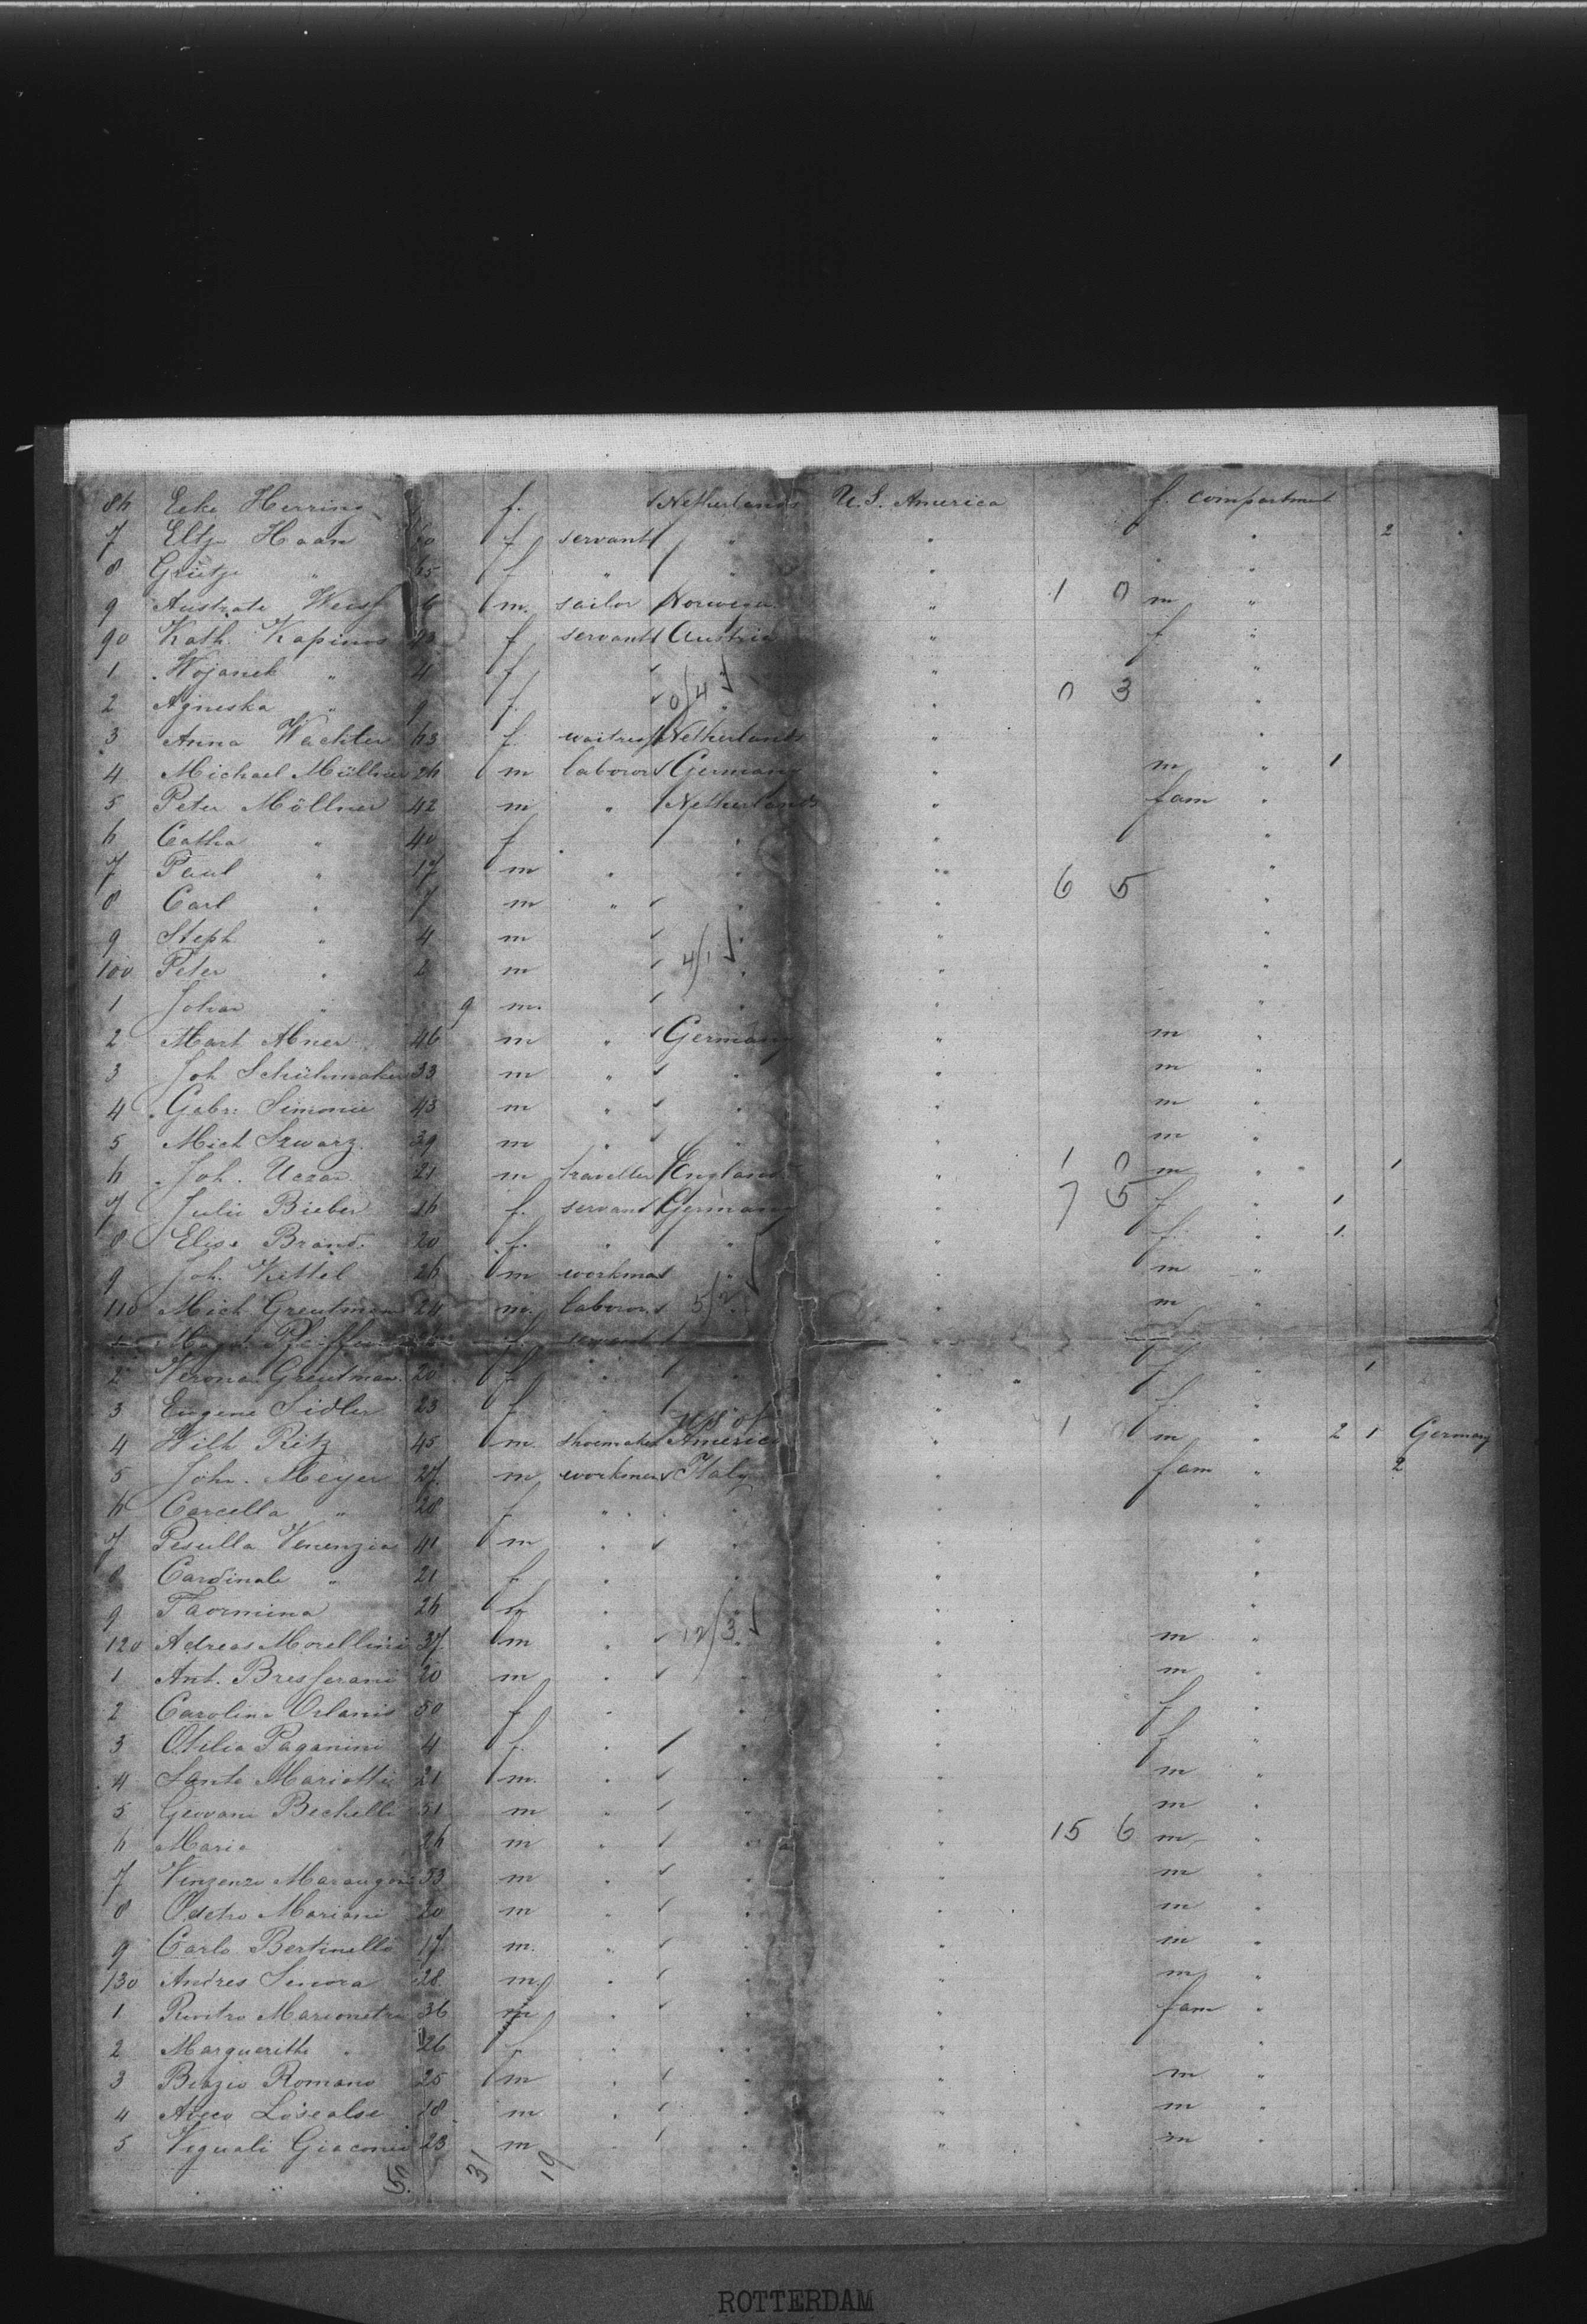 86 Eeke Herring f. Netherlands U.S. America f. compartment
7 Eltje Haan f servant " " " 2 "
8 Grietje " 65 f " " " " "
9 Weiss m. sailor Norwegen " 1 0 m "
90 Kath. Kapinos f servant Austria " f "
1 Wojanek " 4 f " "
2 Agneska " 9 f. 0/4 " " 0 3 "
3 Anna Wachter 63 f. waitress Netherlands " "
4 Michael Müllner 26 m laborer Germany " m " 1
5 Peter Möllner 42 m " Netherlands " fam "
6 Catha " 40 f " " " "
7 Paul " 17 m " " " "
8 Carl " 7 m " " " 6 5 "
9 Steph " 4 m " "
100 Peter " 2 m 4/1 " " "
1 Johan " 9 m. " " "
2 Mart Abner 46 m " Germany " m "
3 Joh Schühmaker 33 m " " " m "
4 Gabr. Simonie 43 m " " " m "
5 Mich Szwarz 39 m " " " m "
6 Joh. Uczar 21 m traveller England " 1 0 m " 1
7 Julie Bieber 26 f. servant Germany " 7 5 f " 1
8 Elise Brand 20 f. " " " f. " 1
9 Joh. Kettel 26 m workman " " m "
110 Mich. Greutman 24 m. laborer 5/2 " m "
1 Magd. Pfeiffer f. servant
2 Verona Greutman 20 f " " f " 1
3 Eugene Sidler 23 f " " f. "
4 Wilh Ritz 45 m. shoemaker U.S. of America " 1 0 m " 2 1 Germany
5 Joh. Meyer 27 m workman Italy " fam " 2
6 Carcella " 28 f " " " "
7 Pesulla Venenzia 41 m " " " "
8 Cardinale " 21 f " " " "
9 Taormina 26 " " "
120 Adreas Morellini 37 m " 12/3 " m "
1 Ant. Bresserani 20 m " " " m "
2 Carolina Orlanis 50 f " " " f "
3 Otilia Paganini 4 f. " " " f "
4 Santo Mariotti 21 m. " " " m "
5 Geovani Bechelli 51 m " " " m "
6 Mario 26 m " " " 15 6 m "
7 Vinzenzo Marangoni 53 m " " " m "
8 Odetro Mariani 20 m " " " m "
9 Carlo Bertinello 17 m. " " " m "
130 Andres Senora 28 m. " " " m "
1 Marionetra 36 m " " " fam "
2 Marguerithe " 26 f " " " "
3 Biazio Romano 25 m " " " m "
4 18 m " " " m "
5 Viguali Giaconi 23 m " " " m "
50 31 19
ROTTERDAM